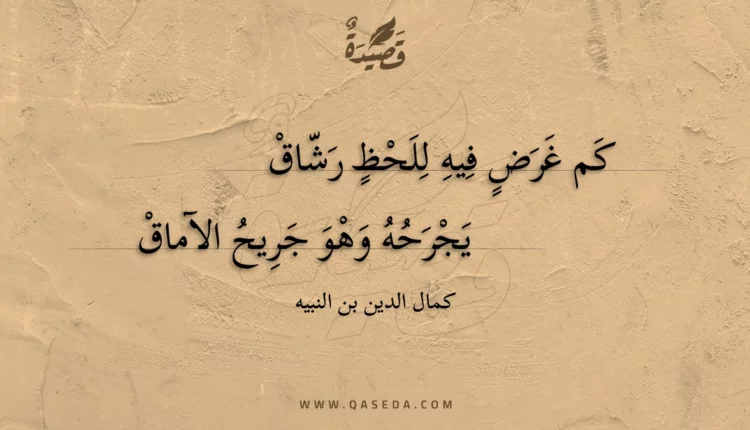 قَصِيْدَةٌ
كَم غَرَضٍ فِيهِ لِلَحْظٍ رَشّاقْ
يَجْرَحُهُ وَهْوَ جَرِيحُ الآماقْ
كمال الدين بن النبيه
WWW.QASEDA.COM